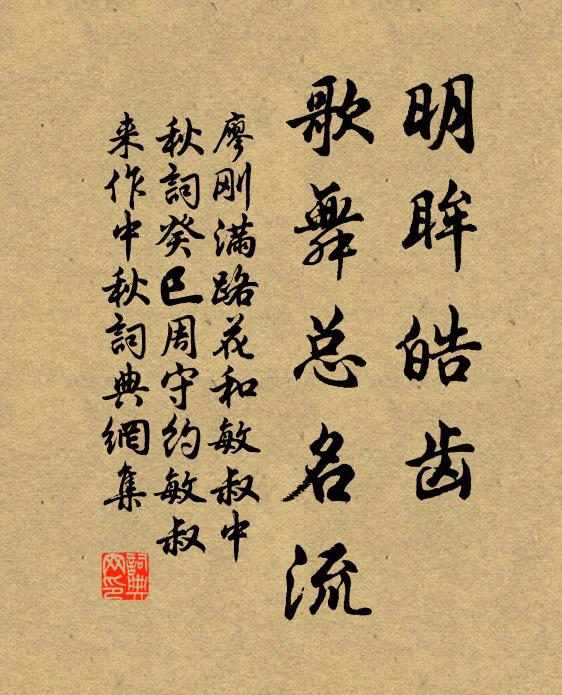 明眸皓齿
歌舞总名流
廖刚满路花和敏叔中
秋詞癸巳周守约敏叔
来作中秋詞典網集
詞典
网印